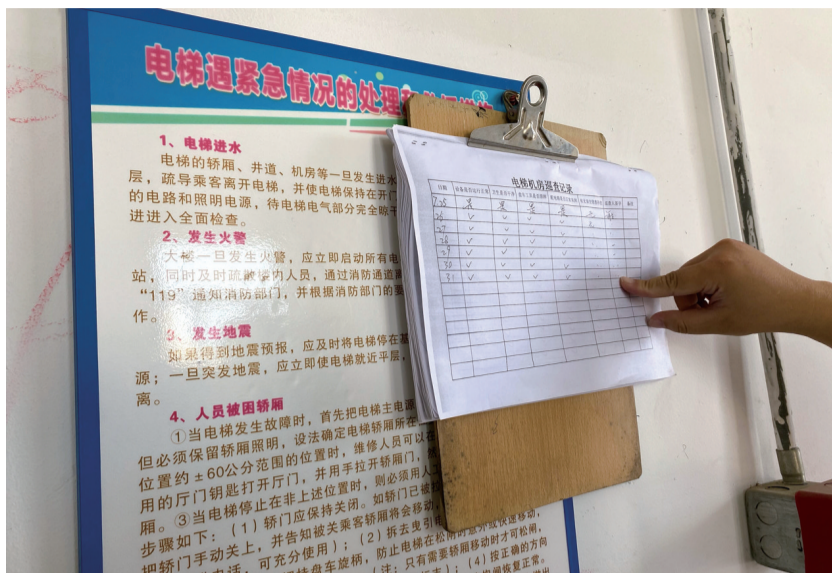 电梯遇紧急情况的处理
1、电梯进水
电梯的轿厢、井道、机房等一旦发生进水
层，疏导乘客离开电梯，并使电梯保持在开门
的电路和照明电源，待电梯电气部分完全晾干
进进入全面检查。
2、发生火警
大楼一旦发生火警，应立即启动所有电
站，同时及时疏散楼内人员，通过消防通道离
“119”通知消防部门，并根据消防部门的要
作。
3、发生地震
如果得到地震预报，应及时将电梯停在基
源；一旦突发地震，应立即使电梯就近平层，
离。
4、人员被困轿厢
①当电梯发生故障时，首先把电梯主电源
但必须保留轿厢照明，设法确定电梯轿厢所在
位置约±60公分范围的位置时，维修人员可以在
用的厅门钥匙打开厅门，并用手拉开轿厢门，
厢。③当电梯停止在非上述位置时，则必须用人工
步骤如下：（1）轿门应保持关闭。如轿门已被
把轿门手动关上，并告知被关乘客轿厢将会移动
电话，可充分使用）；（2）拆去曳引
持盘车旋柄，防止电梯在松闸时意外或快速移动，
（注：只有需要轿厢移动时才可松闸，
（4）按正确的方向
恢复正常。
电梯机房巡查记录
日期 备注
7.25
26 ✓ ✓ ✓ ✓
27 ✓ ✓ ✓ ✓
28 ✓ ✓ ✓ ✓
29 ✓ ✓ ✓ ✓
30 ✓ ✓ ✓ ✓
31 ✓ ✓ ✓ ✓